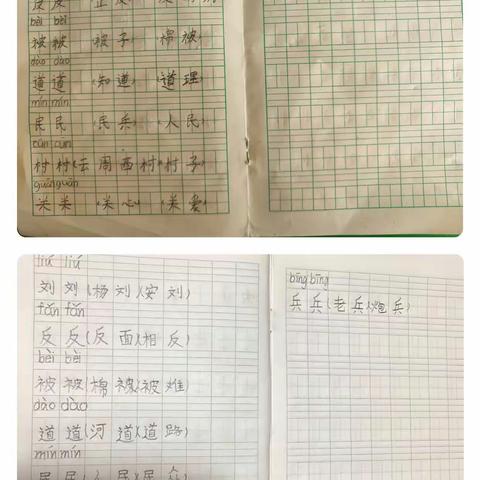 反 反 (正 反)
bèi bèi
被 被 (被 子) (棉 被)
dào dào
道 道 (知 道) (道 理)
mín mín
民 民 (民 兵) (人 民)
cūn cūn
村 村 (云 周 西 村) (村 子)
guān guān
关 关 (关 心) (关 爱)
liú liú
刘 刘 (杨 刘) (安 刘)
fǎn fǎn
反 反 (反 面) (相 反)
bèi bèi
被 被 (棉 被) (被 难)
dào dào
道 道 (河 道) (道 路)
mín mín
民 民 (人 民) (民 众)
bīng bīng
兵 兵 (老 兵) (炮 兵)